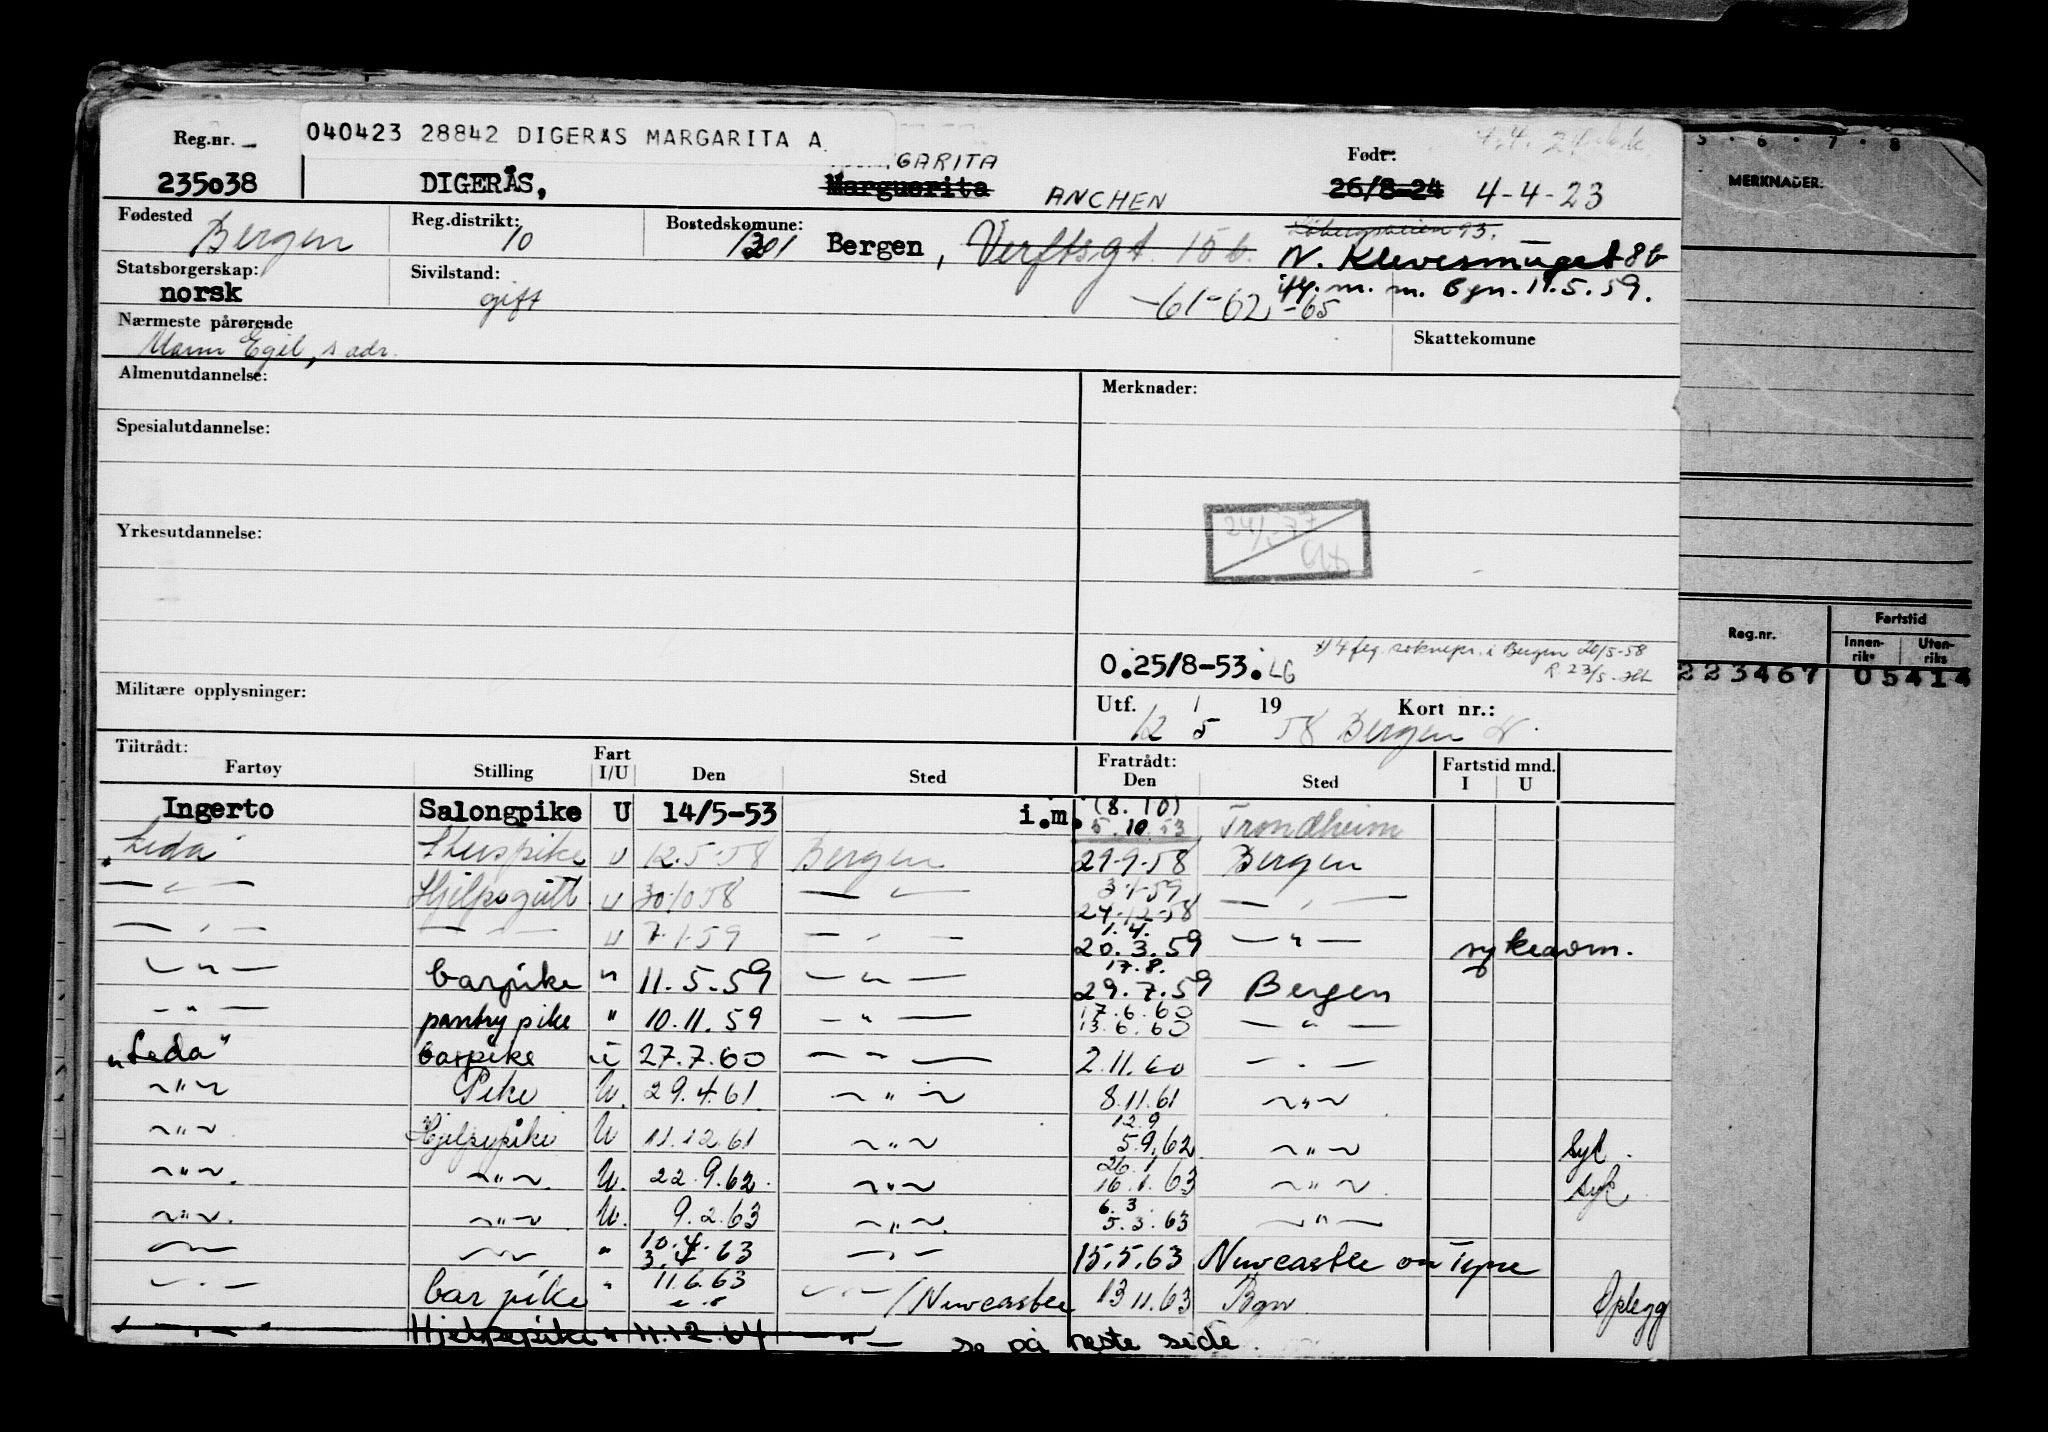 Reg.nr. 040423 28842 DIGERAS MARGARITA A
4.4.24
5 · 6 · 7 · 8
GARITA
Født:
MERKNADER:
235038 DIGERÅS, Marguerita ANCHEN 26/8-24 4-4-23
Fødested Bergen Reg.distrikt: 10 Bostedskomune: 1301 Bergen, Verftsgt. 15 b. 93.
N. Klevesmuget 8b
Statsborgerskap: norsk Sivilstand: gift
iflg. m. m. Bgn. 11.5.59.
-61-62-65
Nærmeste pårørende
Mann Egil, s adr.
Skattekomune
Almenutdannelse: Merknader:
Spesialutdannelse:
Yrkesutdannelse:
24/5 77
Fartstid
Reg.nr. Innen-riks Uten-riks
223467 05414
i Bergen 20/5-58
O.25/8-53. LG
R. 23/5
Militære opplysninger:
Utf. / 19 Kort nr.:
12 5 58 Bergen
Tiltrådt: Fratrådt:
Fartøy Stilling Fart I/U Den Sted Den Sted Fartstid mnd. I U
Ingerto Salongpike U 14/5-53 i.m. (8.10) 5.10.53 Trondheim
"Leda" U 12.5.58 Bergen 29.9.58 Bergen
— " — Hjelpegutt U 30/10 58 — " — 3.1.59 24.12.58 — " —
— " — — " — U 7.1.59 — " — 1.4. 20.3.59 — " — sykeavm.
— " — barpike " 11.5.59 — " — 17.8. 29.7.59 Bergen
— " — pantrypike " 10.11.59 — " — 17.6.60 13.6.60 — " —
"Leda" barpike u 27.7.60 — " — 2.11.60 — " —
~ " ~ Pike U. 29.4.61 ~ " ~ 8.11.61 ~ " ~
~ " ~ Hjelpepike U 11.12.61 ~ " ~ 12.9 5.9.62 ~ " ~ Syk.
~ " ~ ~ " ~ U. 22.9.62 ~ " ~ 26.1 16.1.63 ~ " ~ syk
~ " ~ ~ " ~ U. 9.2.63 ~ " ~ 6.3. 5.3.63 — " —
~ " ~ ~ " ~ " 10.4. 3.4.63 — " — 15.5.63 Newcastle on Tyne
— " — barpike " 11.6.63 — " — / Newcastle 13 11.63 Bgn Oplegg
— " — Hjelpepike " 11.12.64 — " — se på neste side.